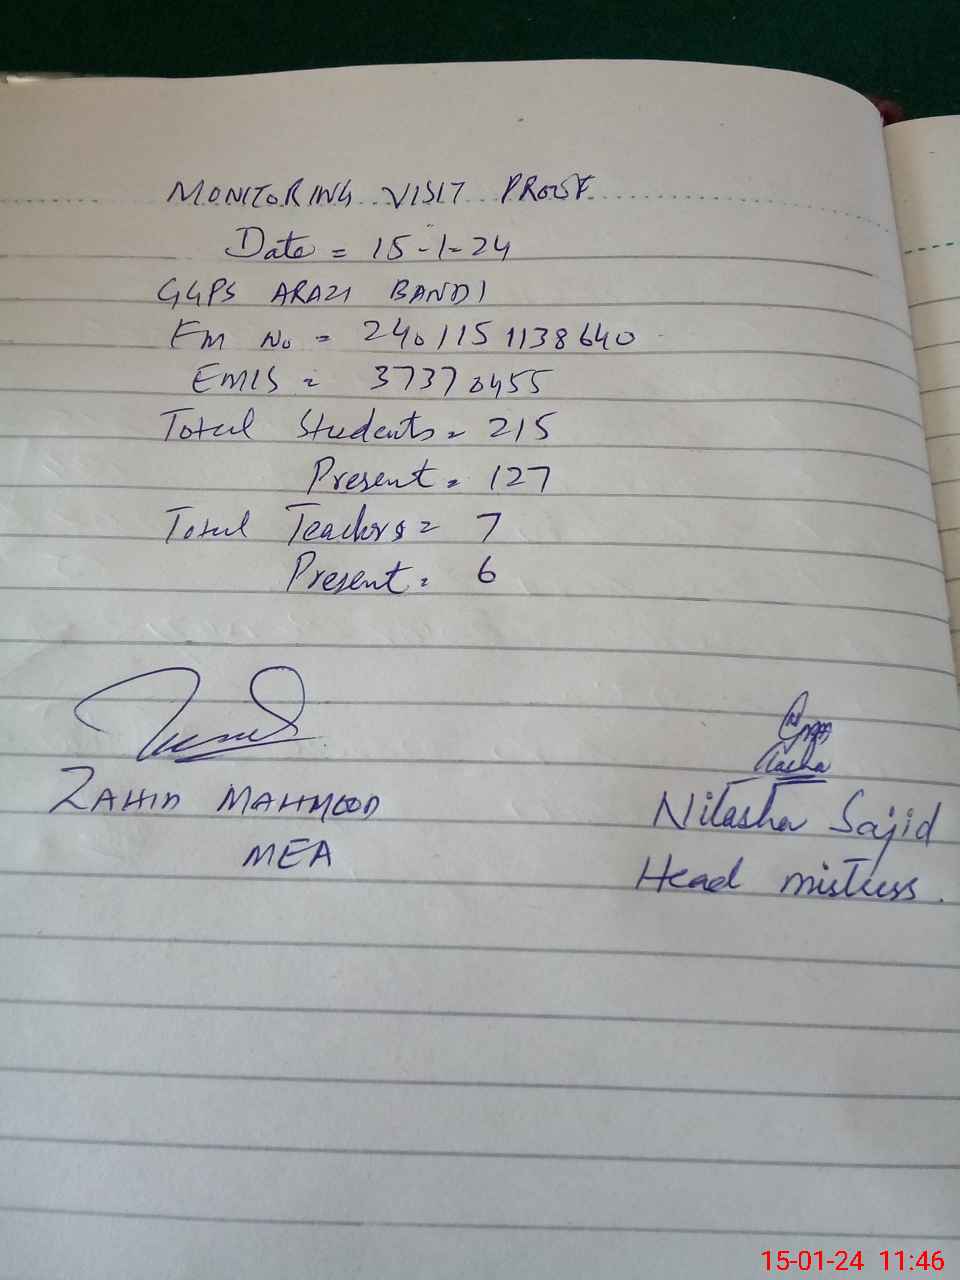 MONITORING VISIT PROOF
Date = 15-1-24
GGPS ARAZI BANDI
EM No = 2401151138640
EMIS = 37370455
Total Students = 215
Present = 127
Total Teachers = 7
Present = 6
ZAHID MAHMOOD
MEA
Nilasha Sajid
Head mistress.
15-01-24 11:46